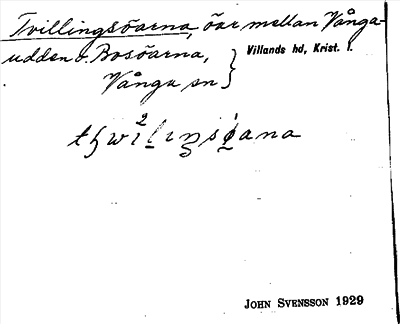 Tvillingsöarna, öar mellan Vånga-
udden o. Bosöarna,
Vånga sn } Villands hd, Krist. l.
JOHN SVENSSON 1929